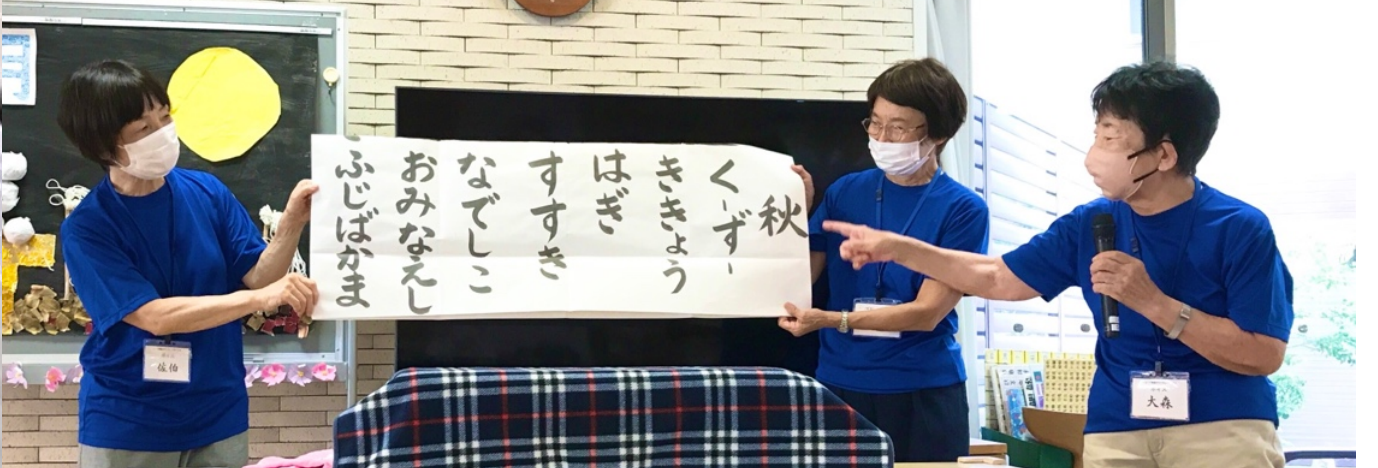 秋
くーずー
ききょう
はぎ
すすき
なでしこ
おみなえし
ふじばかま
佐伯
大森